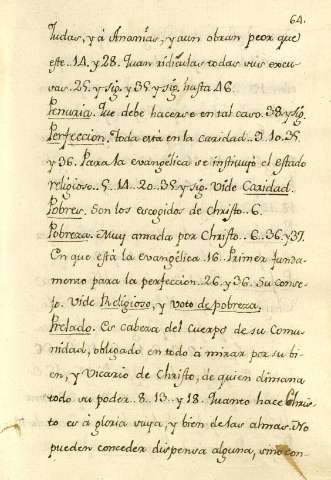 64.
Judas, y á Ananías, y aun obran peor que
este. 14. y 28. Quan ridículas todas sus excu-
sas. 25. y sig. y 35. y sig. hasta 46.
Penuria. Que debe hacerse en tal caso. 38. y sig.
Perfeccion. Toda está en la caridad. 9. 10. 35.
y 36. Para la evangélica se instituyó el estado
religioso. 5. 14. 20. 35. y sig. Vide Caridad.
Pobres. Son los escogidos de Christo. 6.
Pobreza. Muy amada por Christo. 6. 36. y 37.
En que está la evangélica. 16. Primer funda-
mento para la perfeccion. 26. y 36. Su conse-
jo. Vide Religioso, y voto de pobreza.
Prelado. Es cabeza del cuerpo de su Comu-
nidad, obligado en todo á mirar por su bi-
en, y Vicario de Christo, de quien dimana
todo su poder. 8. 13. y 18. Quanto hace Chris-
to es á gloria suya, y bien de las almas. No
pueden conceder dispensa alguna, sino con-